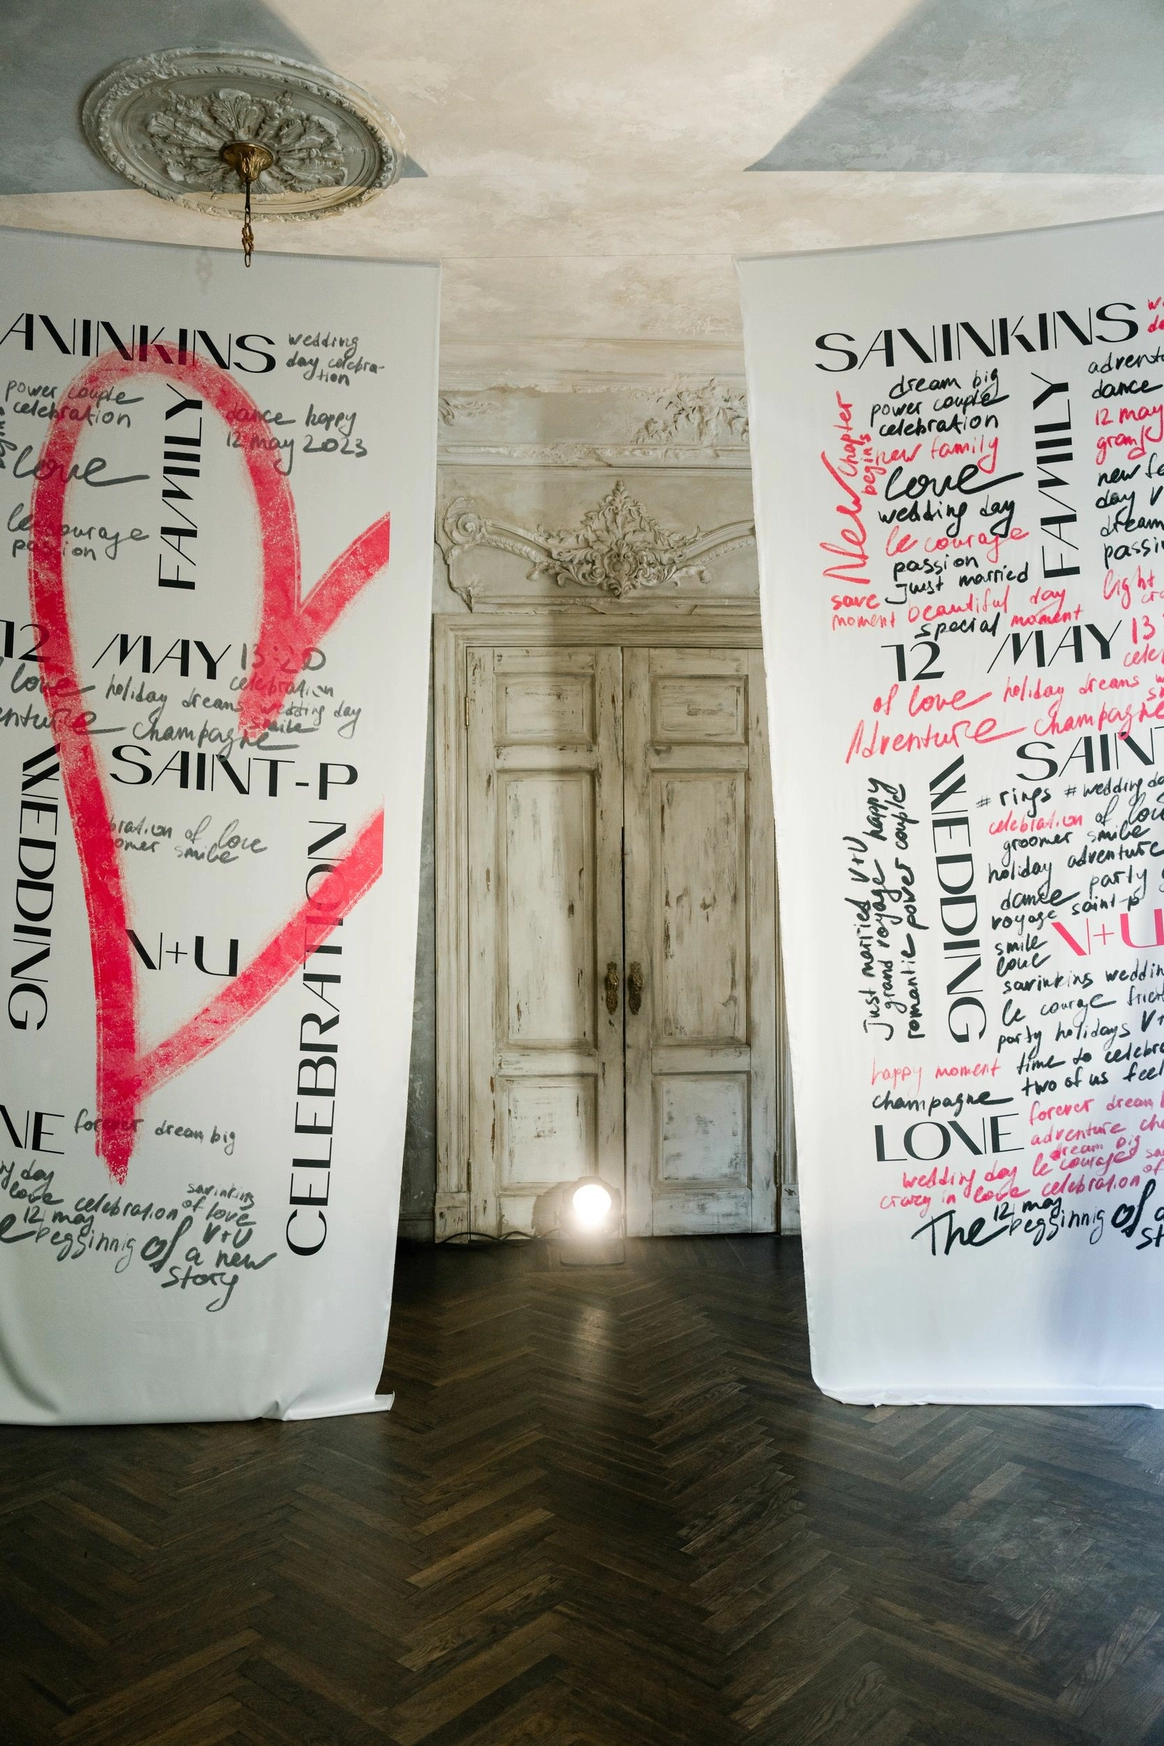 SAVINKINS
wedding
day celebra-
tion
power couple
celebration
dance happy
12 may 2023
love
FAMILY
le courage
passion
12 MAY 13:20
love holiday dreams celebration
wedding day
smile
champagne
SAINT-P
WEDDING
of love
smile
V+U
CELEBRATION
forever dream big
day
love celebration of love
savinkins
12 may
V+U
begginnig of a new
story
SAVINKINS
dream big
power couple
celebration
New Chapter
begins
new family
love
FAMILY
wedding day
le courage
passion
just married
save beautiful day
moment
special moment
dance
12 may
12 MAY 13
of love holiday dreams
Adventure champagne
SAINT
WEDDING
just married V+U happy
grand voyage
romantic power couple
# rings # wedding
celebration of love
groomer smile
holiday adventure
dance party
voyage saint-p
smile
love
V+U
savinkins
le courage
party holidays
happy moment time to
champagne two of us feel
LOVE
forever dream
adventure
dream big
wedding day le courage
crazy in love celebration
12 may
The begginnig of a